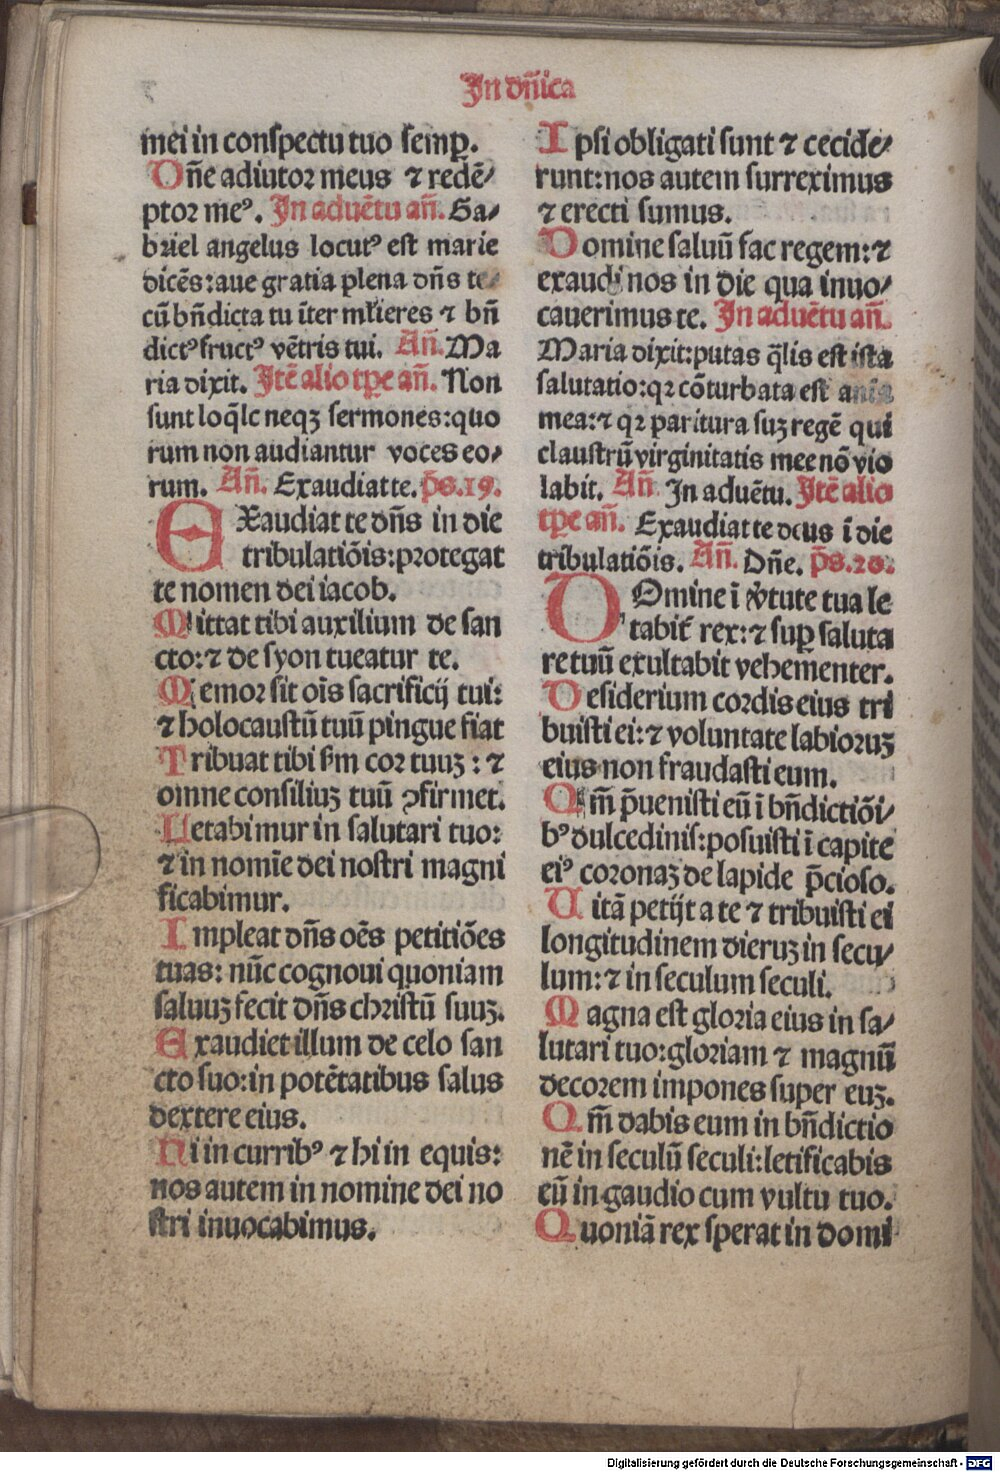 In dñica
mei in conspectu tuo semꝑ.
Dñe adiutor meus ⁊ redē⸗
ptor meꝰ. In aduētu añ. Ga⸗
briel angelus locutꝰ est marie
dicēs: aue gratia plena dñs te⸗
cū bñdicta tu īter mł'ieres ⁊ bñ
dictꝰ fructꝰ vētris tui. Añ. Ma
ria dixit. Itē alio tꝑe añ. Non
sunt loq̄le neqꝫ sermones: quo
rum non audiantur voces eo⸗
rum. Añ. Exaudiat te. p̄s. 19.
EXaudiat te dñs in die
tribulatiōis: protegat
te nomen dei iacob.
Mittat tibi auxilium de san
cto: ⁊ de syon tueatur te.
Memor sit oīs sacrificij tui:
⁊ holocaustū tuū pingue fiat
Tribuat tibi ẜm cor tuuꝫ: ⁊
omne consiliuꝫ tuū ꝯfirmet.
Letabimur in salutari tuo:
⁊ in nomīe dei nostri magni
ficabimur.
Impleat dñs oēs petitiōes
tuas: nūc cognoui quoniam
saluuꝫ fecit dñs christū suuꝫ.
Exaudiet illum de celo san
cto suo: in potētatibus salus
dextere eius.
Hi in curribꝰ ⁊ hi in equis:
nos autem in nomine dei no
stri inuocabimus.
Ipsi obligati sunt ⁊ cecide⸗
runt: nos autem surreximus
⁊ erecti sumus.
Domine saluū fac regem: ⁊
exaudi nos in die qua inuo⸗
cauerimus te. In aduētu añ.
Maria dixit: putas q̄lis est ista
salutatio: qꝛ cōturbata est aīa
mea: ⁊ qꝛ paritura suꝫ regē qui
claustrū virginitatis mee nō vio
labit. Añ. In aduētu. Itē alio
tꝑe añ. Exaudiat te deus ī die
tribulatiōis. Añ. Dñe. p̄s. 20.
DOmine ī v̾tute tua le
tabit᷑ rex: ⁊ suꝑ saluta
re tuū exultabit vehementer.
Desiderium cordis eius tri
buisti ei: ⁊ voluntate labioruꝫ
eius non fraudasti eum.
Qm̄ p̄uenisti eū ī bñdictiōi⸗
bꝰ dulcedinis: posuisti ī capite
eiꝰ coronaꝫ de lapide p̄cioso.
Uitā petijt a te ⁊ tribuisti ei
longitudinem dieruꝫ in secu⸗
lum: ⁊ in seculum seculi.
Magna est gloria eius in sa⸗
lutari tuo: gloriam ⁊ magnū
decorem impones super euꝫ.
Qm̄ dabis eum in bñdictio
nē in seculū seculi: letificabis
eū in gaudio cum vultu tuo.
Quoniā rex sperat in domi
Digitalisierung gefördert durch die Deutsche Forschungsgemeinschaft - DFG